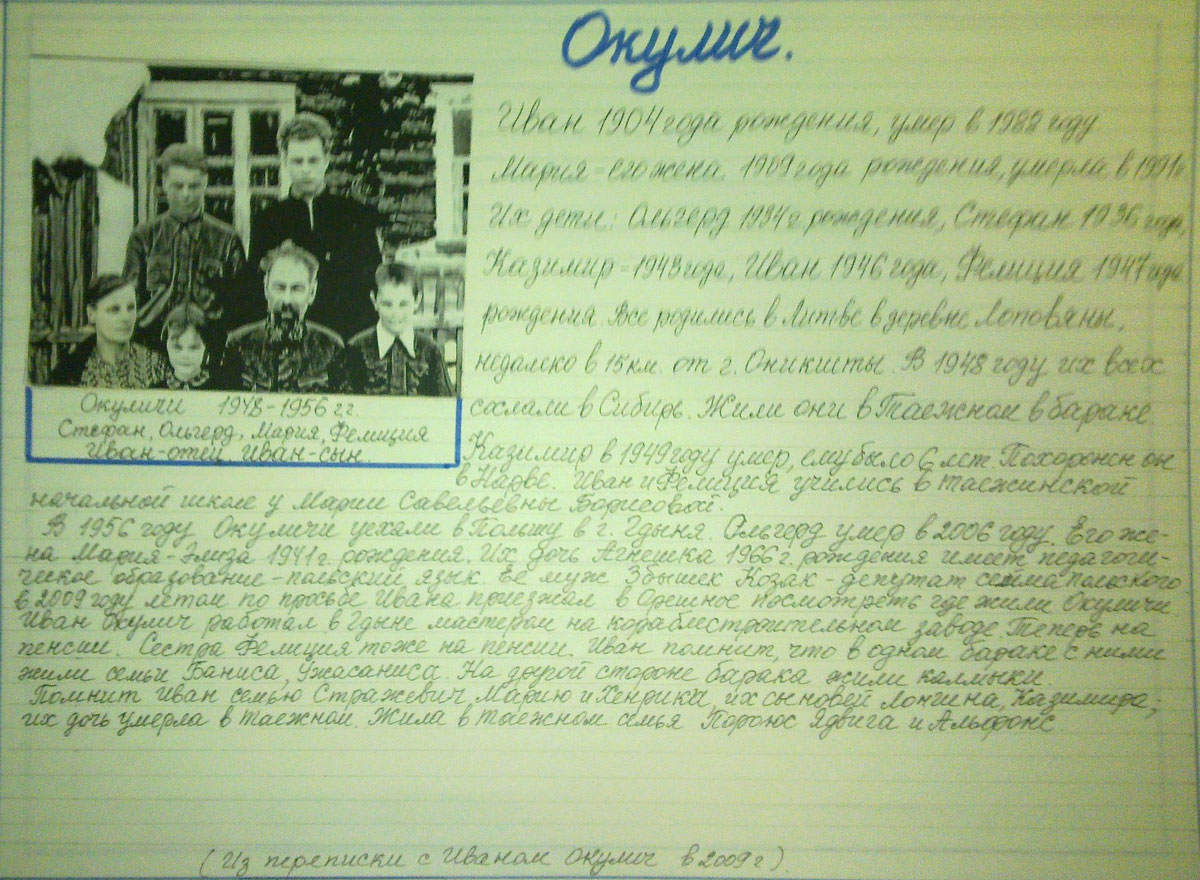 Окулич.
Иван 1904 года рождения, умер в 1988 году
Мария - его жена 1909 года рождения, умерла в 1991г.
Их дети: Ольгерд 1934 г. рождения, Стефан 1936 года,
Казимир - 1943 года, Иван 1946 года, Фелиция 1947 года
рождения. Все родились в Литве в деревне Лоповяны,
недалеко в 15 км. от г. Оникшты. В 1948 году их всех
сослали в Сибирь. Жили они в Таежном в бараке.
Окуличи 1948-1956 гг.
Стефан, Ольгерд, Мария, Фелиция
Иван-отец, Иван-сын.
Казимир в 1949 году умер, ему было 6 лет. Похоронен он
в Нарве. Иван и Фелиция учились в таежинской
начальной школе у Марии Савельевны Борисовой.
В 1956 году Окуличи уехали в Польшу в г. Гдыня. Ольгерд умер в 2006 году. Его же-
на Мария-Элиза 1941 г. рождения. Их дочь Агнешка 1966 г. рождения имеет педагоги-
ческое образование - польский язык. Её муж Збышек Козак - депутат сейма польского
в 2009 году летом по просьбе Ивана приезжал в Орешное посмотреть где жили Окуличи.
Иван Окулич работал в Гдыне мастером на кораблестроительном заводе. Теперь на
пенсии. Сестра Фелиция тоже на пенсии. Иван помнит, что в одном бараке с ними
жили семьи Баниса, Ужасаниса. На другой стороне барака жили калмыки.
Помнит Иван семью Стражевич Марию и Хенрика, их сыновей Лонгина, Казимира,
их дочь умерла в таежном. Жила в таежном семья Ядвига и Альфонс.
(Из переписки с Иваном Окулич в 2009 г.)